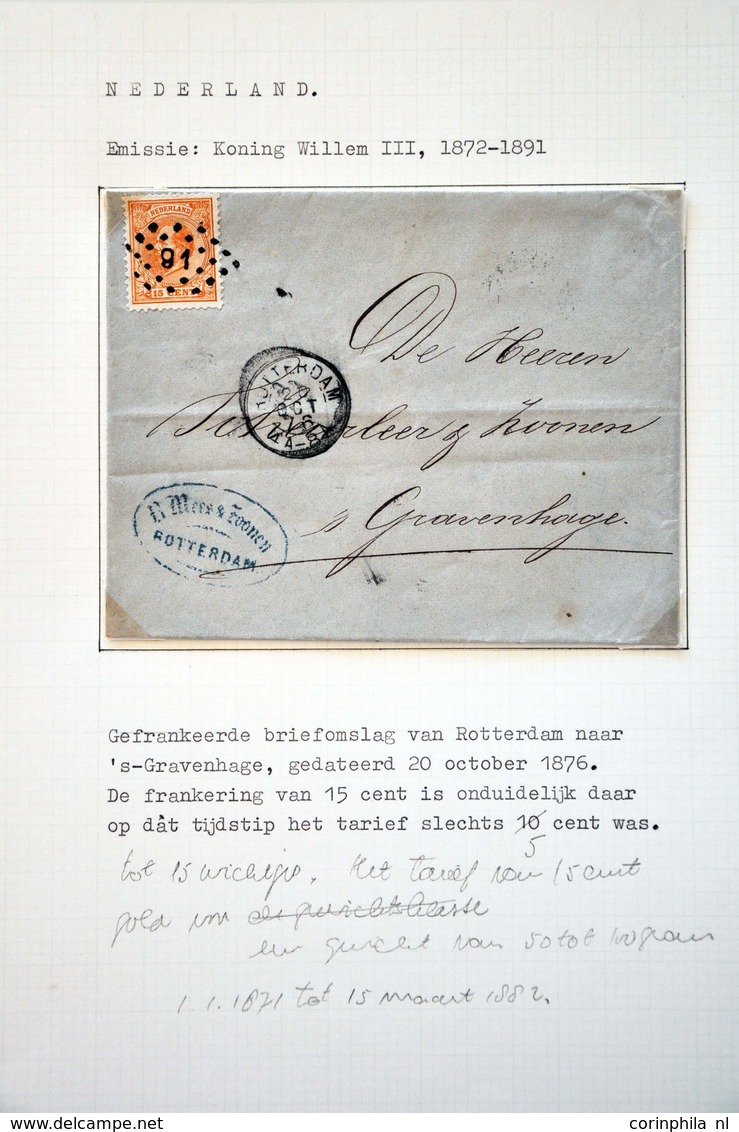 NEDERLAND.
Emissie: Koning Willem III, 1872-1891
NEDERLAND
91
15 CENT
De Heeren
& Zoonen
's Gravenhage.
ROTTERDAM
OCT
& Zoonen
ROTTERDAM
Gefrankeerde briefomslag van Rotterdam naar
's-Gravenhage, gedateerd 20 october 1876.
De frankering van 15 cent is onduidelijk daar
op dât tijdstip het tarief slechts 10 cent was.
5
tot 15 wichtjes. Het tarief van 15 cent
gold voor de gewichtsklasse
een gewicht van 50 tot 100 gram
1.1.1871 tot 15 maart 1882.
corinphila nl